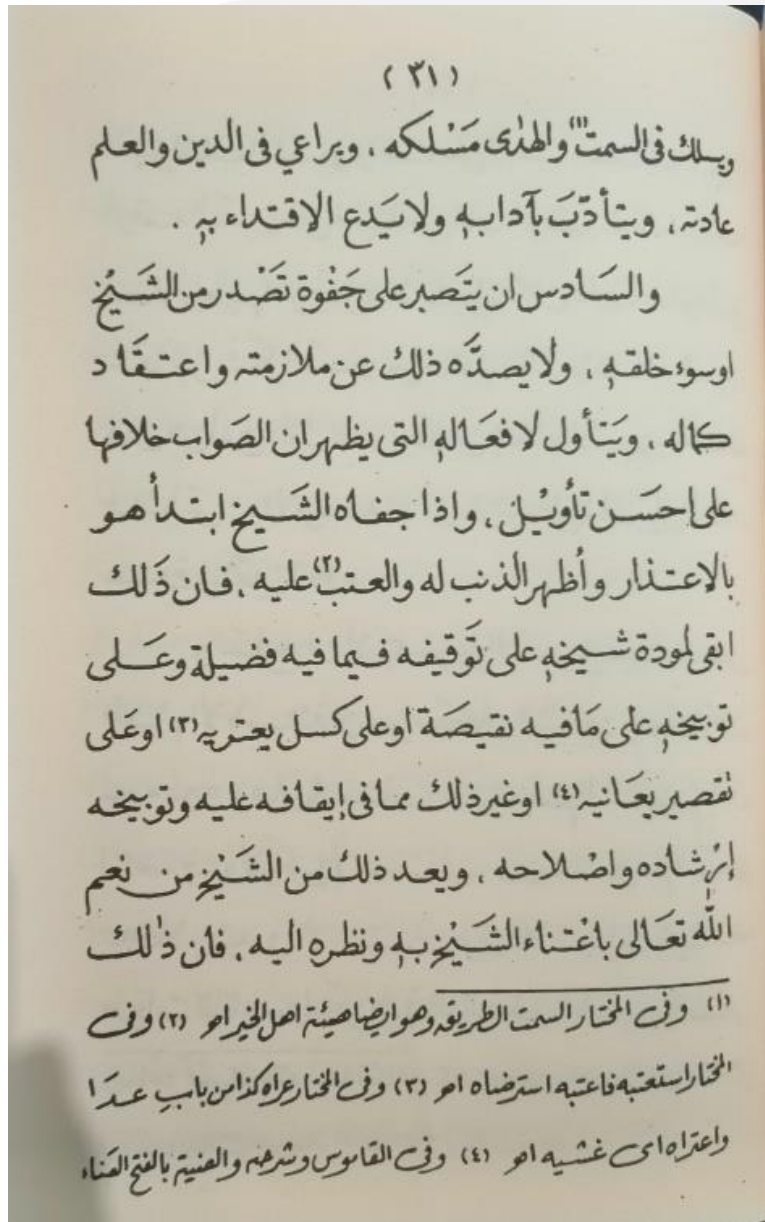 (٣١)
ويسلك فى السمت(١) والهدٰى مَسْلكه ، ويراعي فى الدين والعلم
عادته ، ويتأدّبَ بآدابهٖ ولايَدع الاقتداء بهٖ .
والسَادس ان يتَصبر على جَفْوة تَصْدر من الشَيْخ
اوسوء خلقهٖ ، ولا يصدَّه ذلك عن ملازمته واعتقَاد
كماله ، ويَتأول لافعَالهٖ التى يظهر ان الصَواب خلافها
على احسَن تأويْل ، واذا جفاه الشَيخ ابتدأ هو
بالاعتذار وأظهر الذنب له والعتب(٢) عليه ، فان ذَلك
ابقى لمودة شيخهٖ على تَوقيفه فيما فيه فضيلة وعَلى
توبيخهٖ على مَافيه نقيصَة اوعلى كسل يعتريه(٣) اوعَلى
تقصير يعَانيه(٤) اوغير ذلك مما فى إيقافه عليه وتوبيخه
إرْشاده واصْلاحه ، ويعد ذلك من الشَيْخ من نعم
اللّٰه تعَالى باعْتناء الشَيْخ بهٖ ونظره اليه ، فان ذٰلك
(١) وفى المختار السمت الطريقه وهو ايضا هيئة اهل الخير اھ (٢) وفى
المختار استعتبه فاعتبه استرضاه اھ (٣) وفى المختار عراه كذا من باب عدَا
واعتراه اى غشيه اھ (٤) وفى القاموس وشرحه والعنية بالفتح العَناء